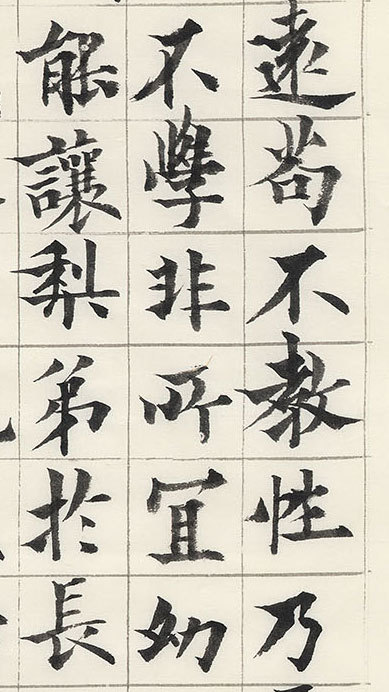 遠苟不教性乃
不學非所宜幼
能讓梨弟於長